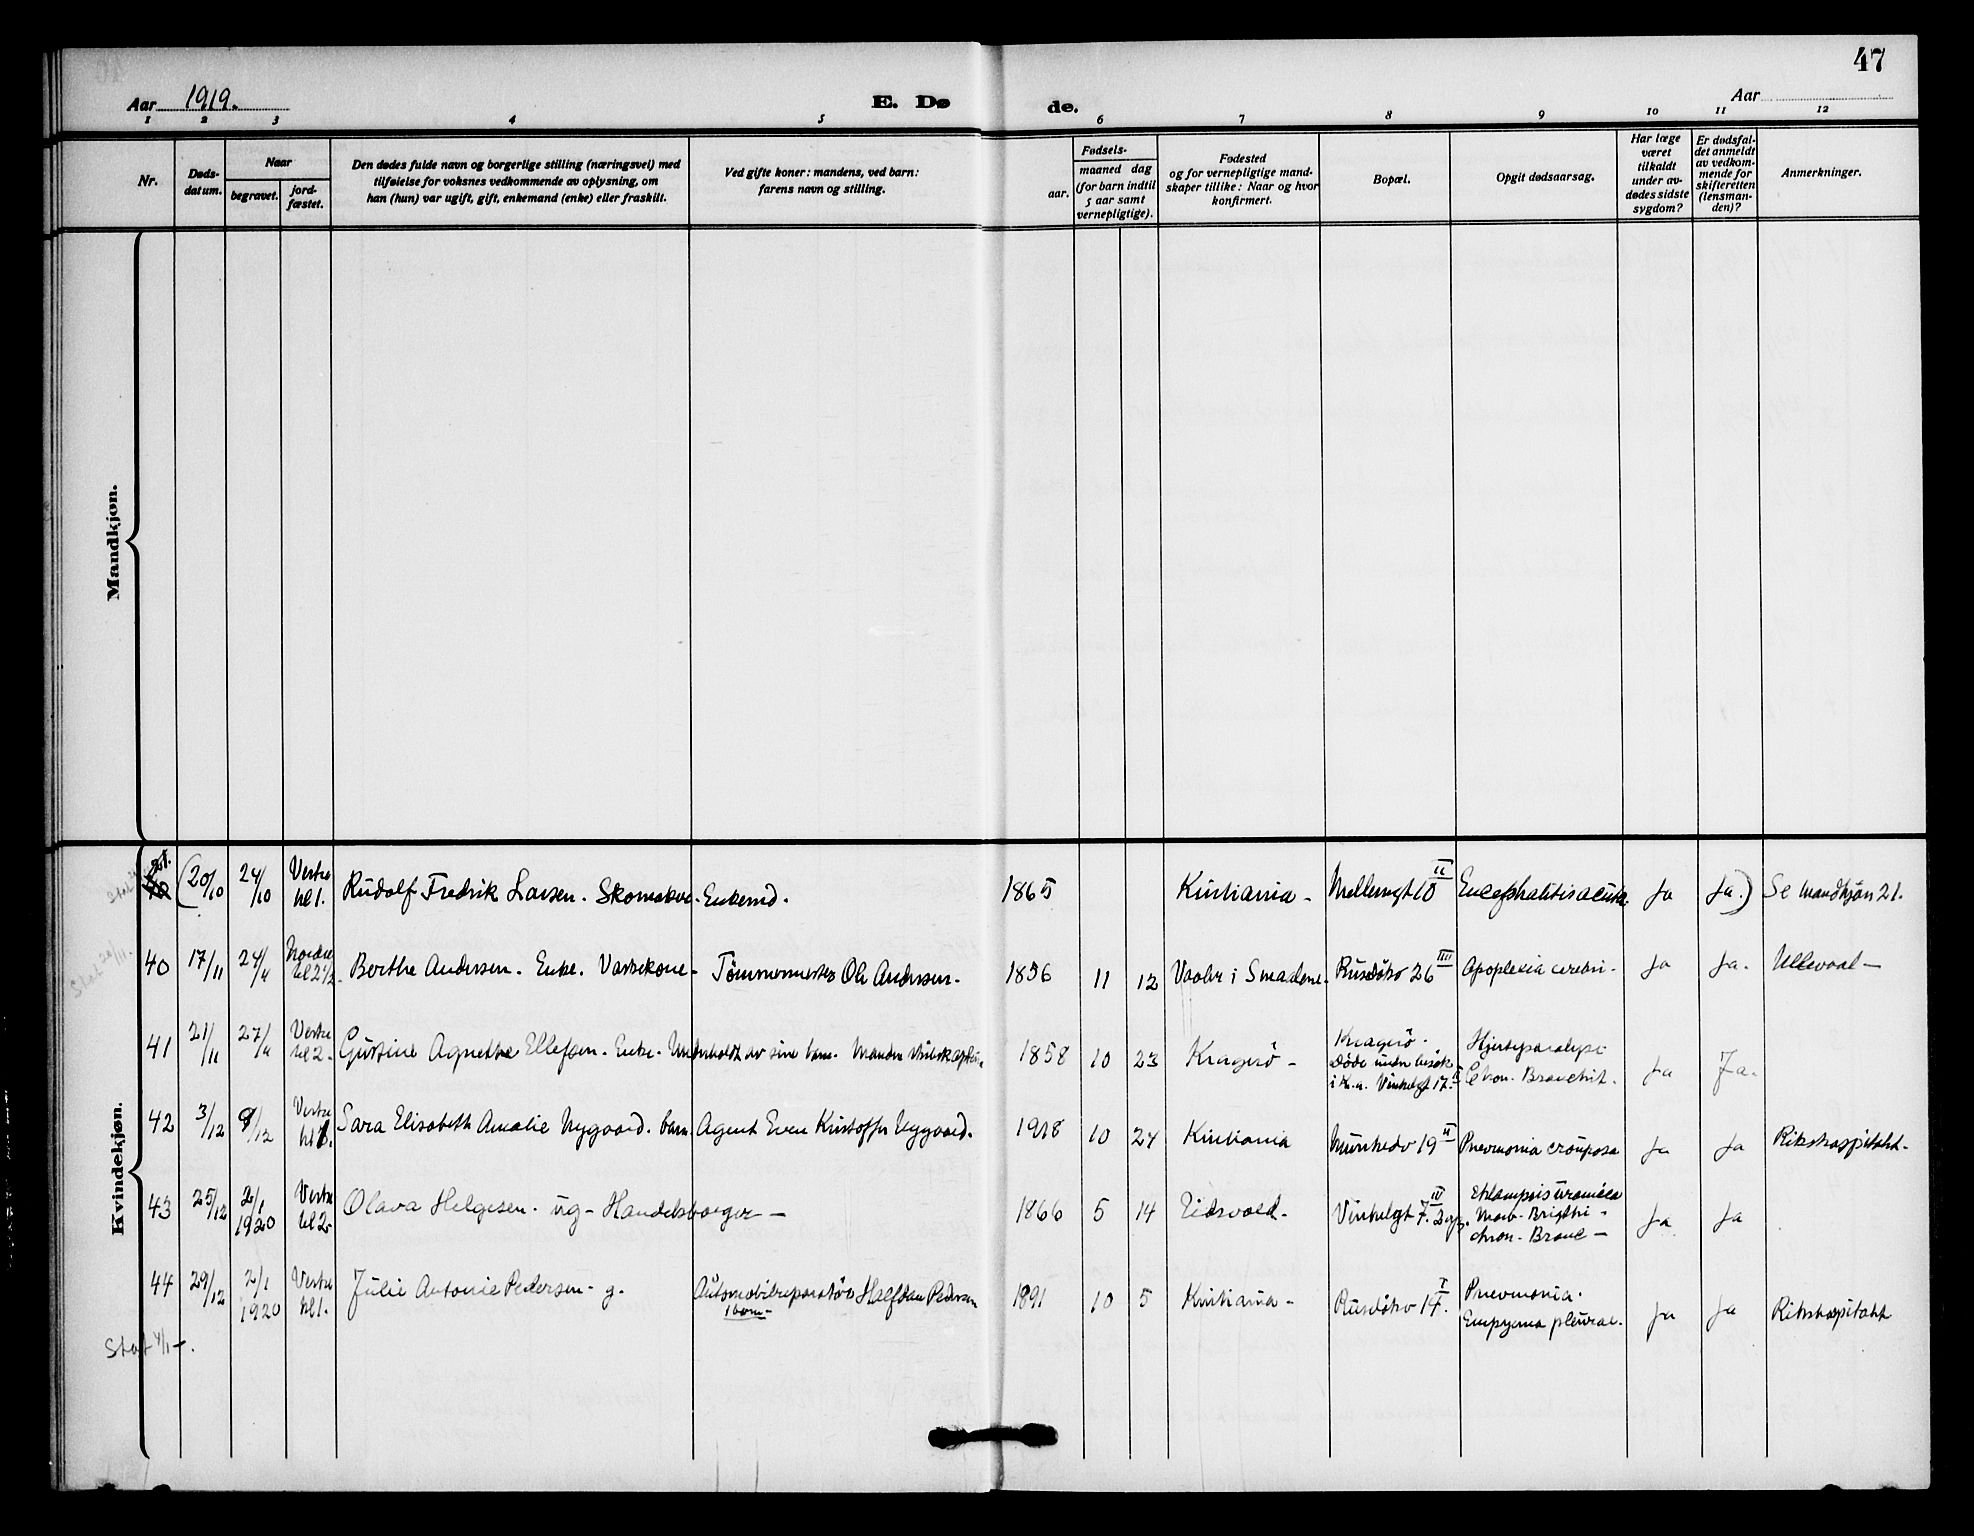 47
Aar 1919.
E. Dø
de.
Aar
1 2 3 4 5 6 7 8 9 10 11 12
Nr.
Døds-
datum.
Naar
begravet.
jord-
fæstet.
Den dødes fulde navn og borgerlige stilling (næringsvei) med
tilføielse for voksnes vedkommende av oplysning, om
han (hun) var ugift, gift, enkemand (enke) eller fraskilt.
Ved gifte koner: mandens, ved barn:
farens navn og stilling.
Fødsels-
aar.
maaned dag
(for barn indtil
5 aar samt
vernepligtige).
Fødested
og for vernepligtige mand-
skaper tillike: Naar og hvor
konfirmert.
Bopæl.
Opgit dødsaarsag.
Har læge
været
tilkaldt
under av-
dødes sidste
sygdom?
Er dødsfal-
det anmeldt
av vedkom-
mende for
skifteretten
(lensman-
den)?
Anmerkninger.
Mandkjøn.
Kvindekjøn.
21. (20/10 24/10 Vestre kl 1. Rudolf Fredrik Larsen. Enkemd. 1865 Kristiania - Møllergt 10 II Encephalitis acuta. Ja Ja.) Se mandkjøn 21.
Stat 20/11.
40 17/11 24/11 Nordre kl 2 1/2. Berthe Andersen. Enke. Vaskekone - Tømmermester Ole Andersen. 1836 11 12 Vaaler i Smaalene. Ruseløkv 26 III Apoplexia cerebri. Ja Ja. Ullevaal -
41 21/11 27/11 Vestre kl 2 - Gustine Agnethe Ellefsen. Enke. Underholdt av sine barn. 1858 10 23 Kragerö -
Kragerö.
Døde under besøk
i Kr.a. Vinkelgt 17. II
Hjerteparalyse
Chron. Bronchit.
Ja Ja.
42 3/12 9/12 Vestre kl 1. Sara Elisabeth Amalie Nygaard. barn. Agent Even Kristoffer Nygaard. 1918 10 24 Kristiania Munkedv 19 II Pneumonia crouposa Ja Ja Rikshospitalet.
43 25/12 2/1 1920 Vestre kl 2 - Olava Helgesen. ug - Handelsborger - 1866 5 14 Eidsvold. Vinkelgt 7. IV
Eklampsis uræmica
Morb. Brigthii -
chron. Bronc -
Ja Ja
44 29/12 2/1 1920 Vestre kl 1. Julie Antonie Pedersen - g. Automobilreparatör Halfdan Pedersen
1 barn -
1891 10 5 Kristiania - Ruseløkv 14. I
Pneumonia.
Empyema pleurae.
Ja Ja Rikshospitalet
Stat 4/1 -.